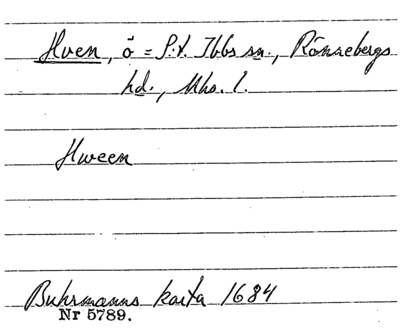 Hven, ö = S:t Ibbs sn., Rönnebergs
hd., Mhs. l.
Hween
Buhrmanns karta 1684
Nr 5789.